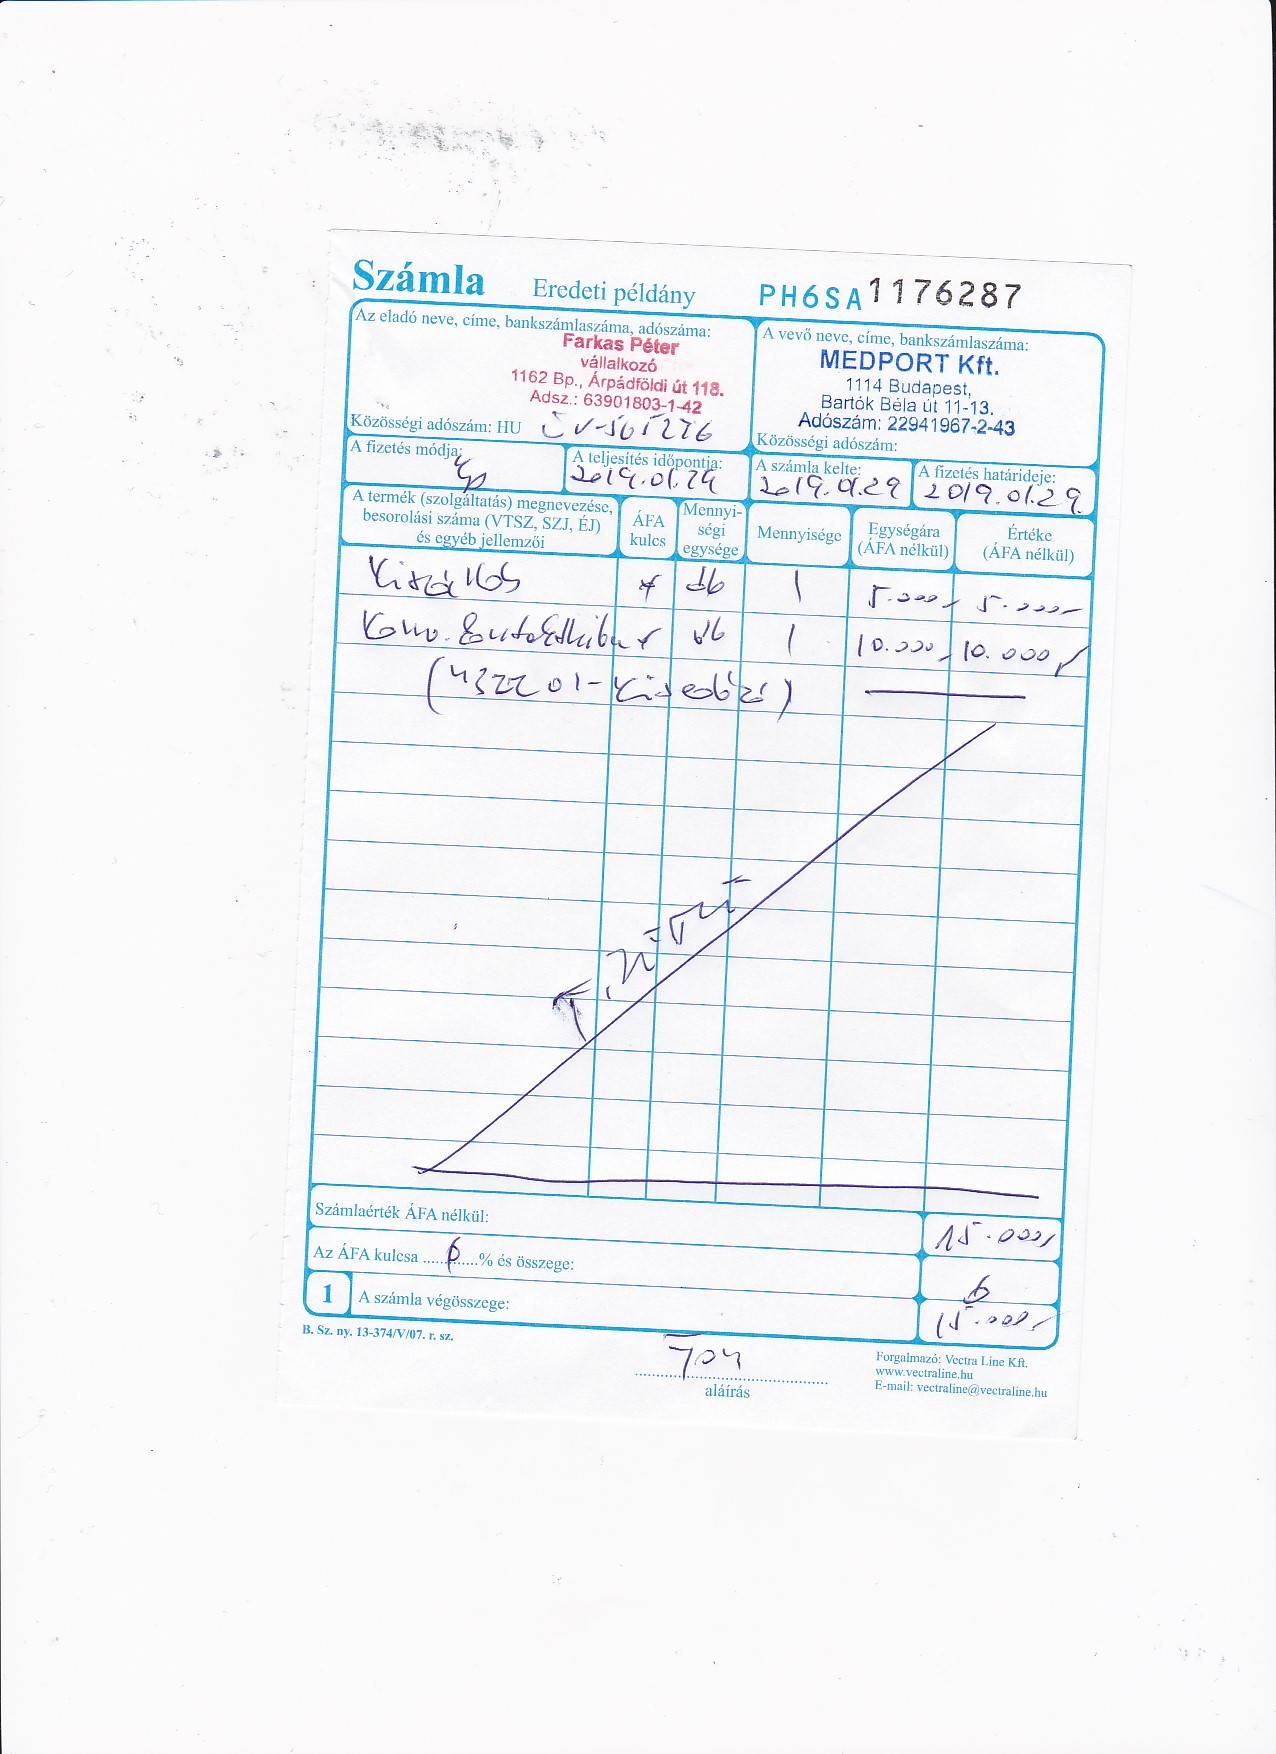 Számla Eredeti példány PH6SA 1176287
Az eladó neve, címe, bankszámlaszáma, adószáma:
Farkas Péter
vállalkozó
1162 Bp., Árpádföldi út 118.
Adsz.: 63901803-1-42
Közösségi adószám: HU
A vevő neve, címe, bankszámlaszáma:
MEDPORT Kft.
1114 Budapest,
Bartók Béla út 11-13.
Adószám: 22941967-2-43
Közösségi adószám:
A fizetés módja:
A teljesítés időpontja:
2019.01.29
A számla kelte:
2019.01.29
A fizetés határideje:
2019.01.29.
A termék (szolgáltatás) megnevezése,
besorolási száma (VTSZ, SZJ, ÉJ)
és egyéb jellemzői
ÁFA
kulcs
Mennyi-
ségi
egysége
Mennyisége
Egységára
(ÁFA nélkül)
Értéke
(ÁFA nélkül)
Kiszállás db 1 5.000,- 5.000,-
db 1 10.000,- 10.000,-
Számlaérték ÁFA nélkül: 15.000,-
Az ÁFA kulcsa ............% és összege:
1 A számla végösszege: 15.000,-
B. Sz. ny. 13-374/V/07. r. sz.
aláírás
Forgalmazó: Vectra Line Kft.
www.vectraline.hu
E-mail: vectraline@vectraline.hu